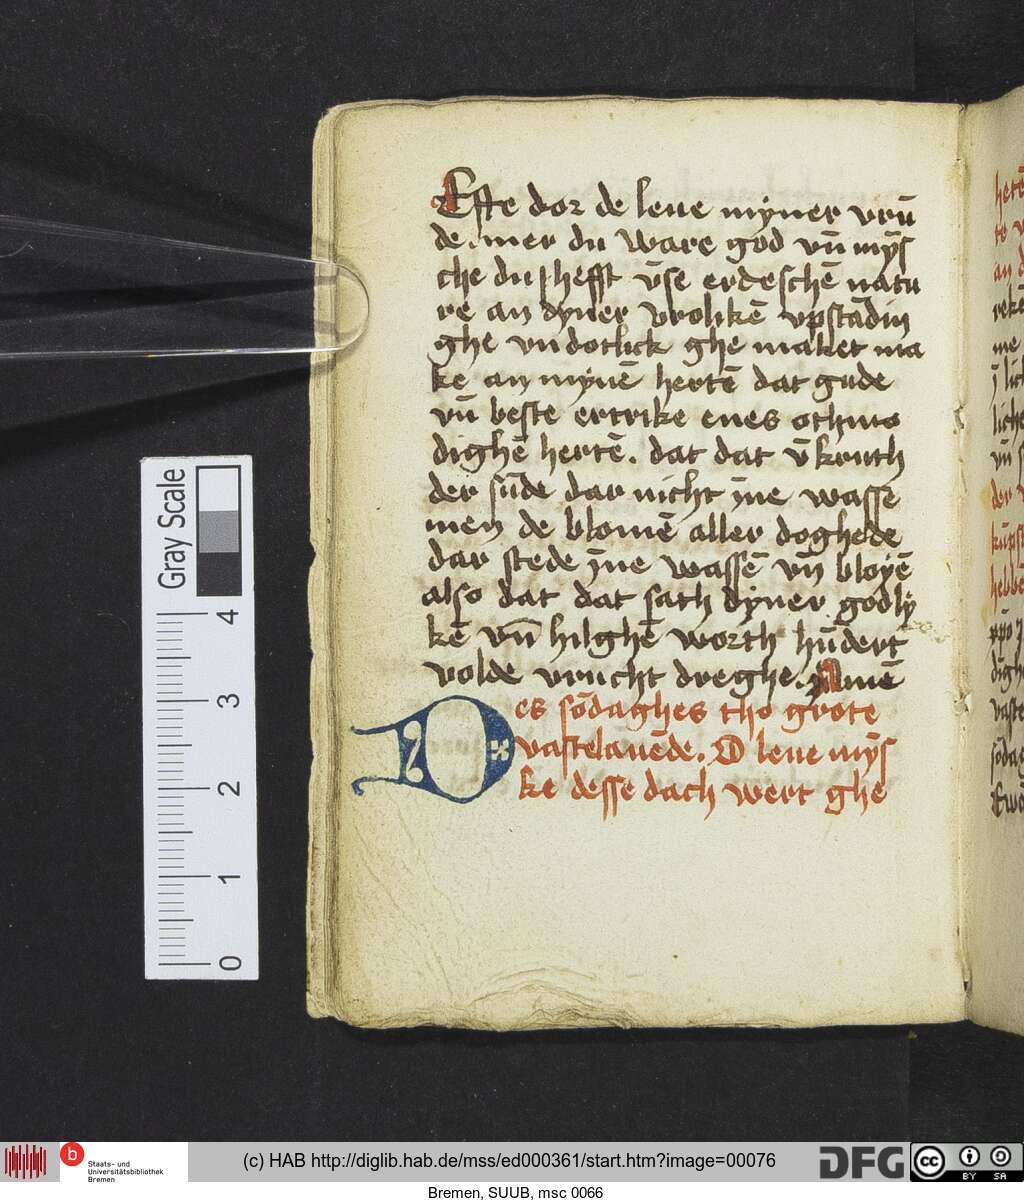 Efte dor de leue myner vrū
de. mer du ware god vn̄ mȳs
che du hefft v̄se erdeschē natu
re an dyner vrolikē vpstādin
ghe vn̄ dotlick ghe maket ma
ke an mynē hertē dat gude
vn̄ beste ertrike enes othmo
dighē hertē. dat dat v̄kruth
der sūde dar nicht ȳne wasse
men de blomē aller doghede
dar stede ȳne wassē vn̄ bloyē
also dat dat sath dyner godly
kē vn̄ hilghē worth hūdert
volde vrucht dreghe. Amē
Des sōdaghes tho grote
vastelauēde. O leue mȳs
ke desse dach wert ghe
Gray Scale
4
3
2
1
0
b Staats- und
Universitätsbibliothek
Bremen
(c) HAB http://diglib.hab.de/mss/ed000361/start.htm?image=00076
DFG
cc BY SA
Bremen, SUUB, msc 0066